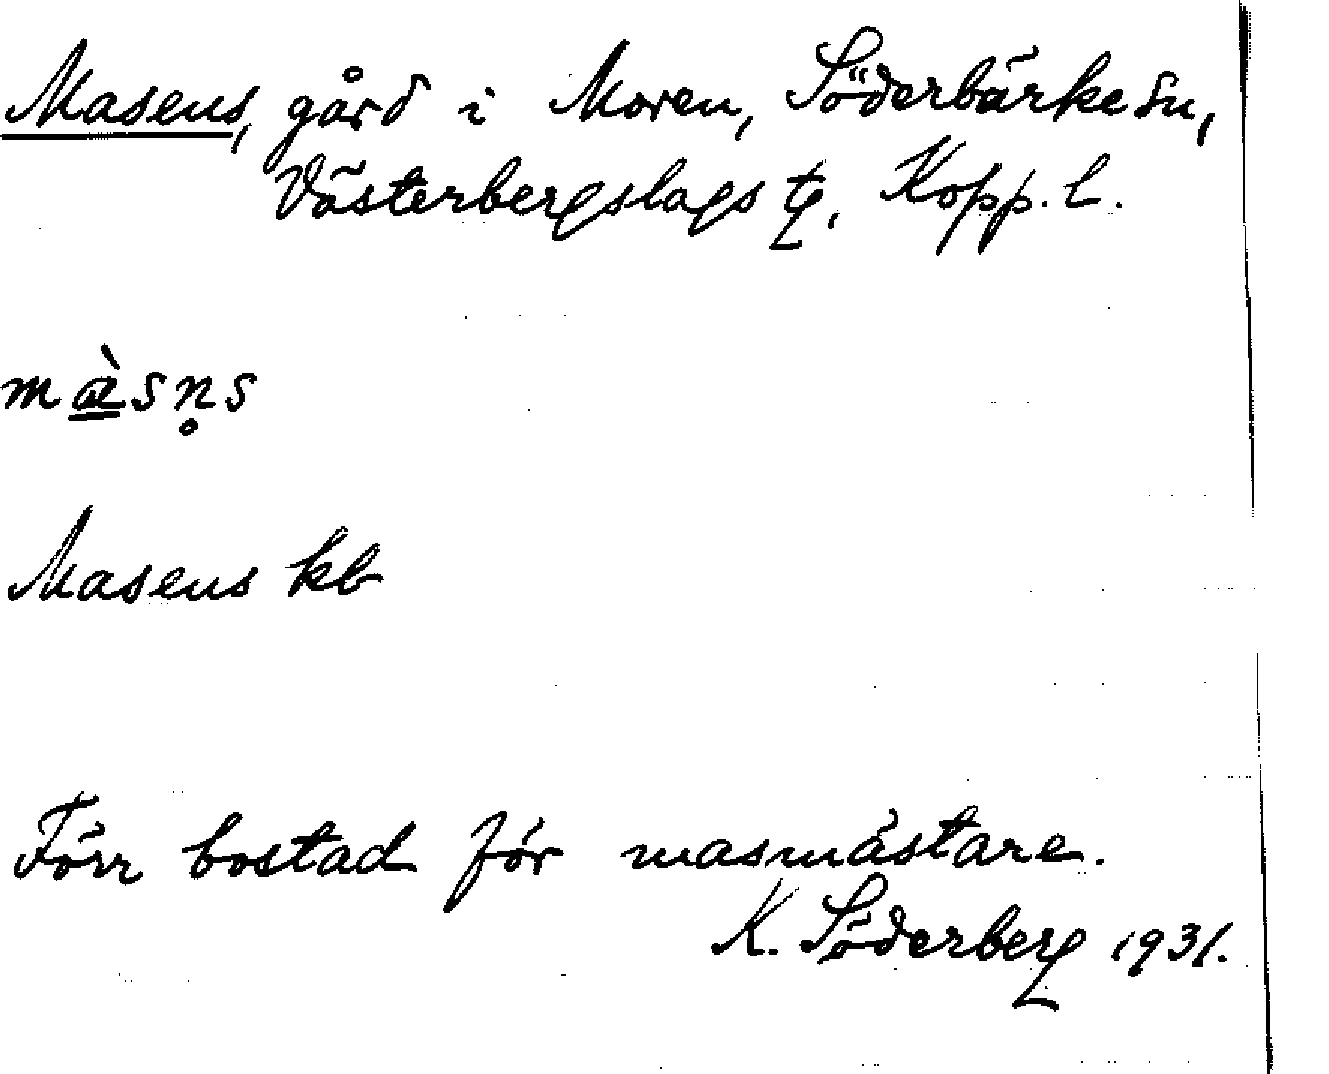 Masens, gård i Moren, Söderbärke Sn,
Västerbergslags tg, Kopp. L.
mæ̀sn̥s
Masens kb
Förr bostad för masmästare.
K. Söderberg 1931.